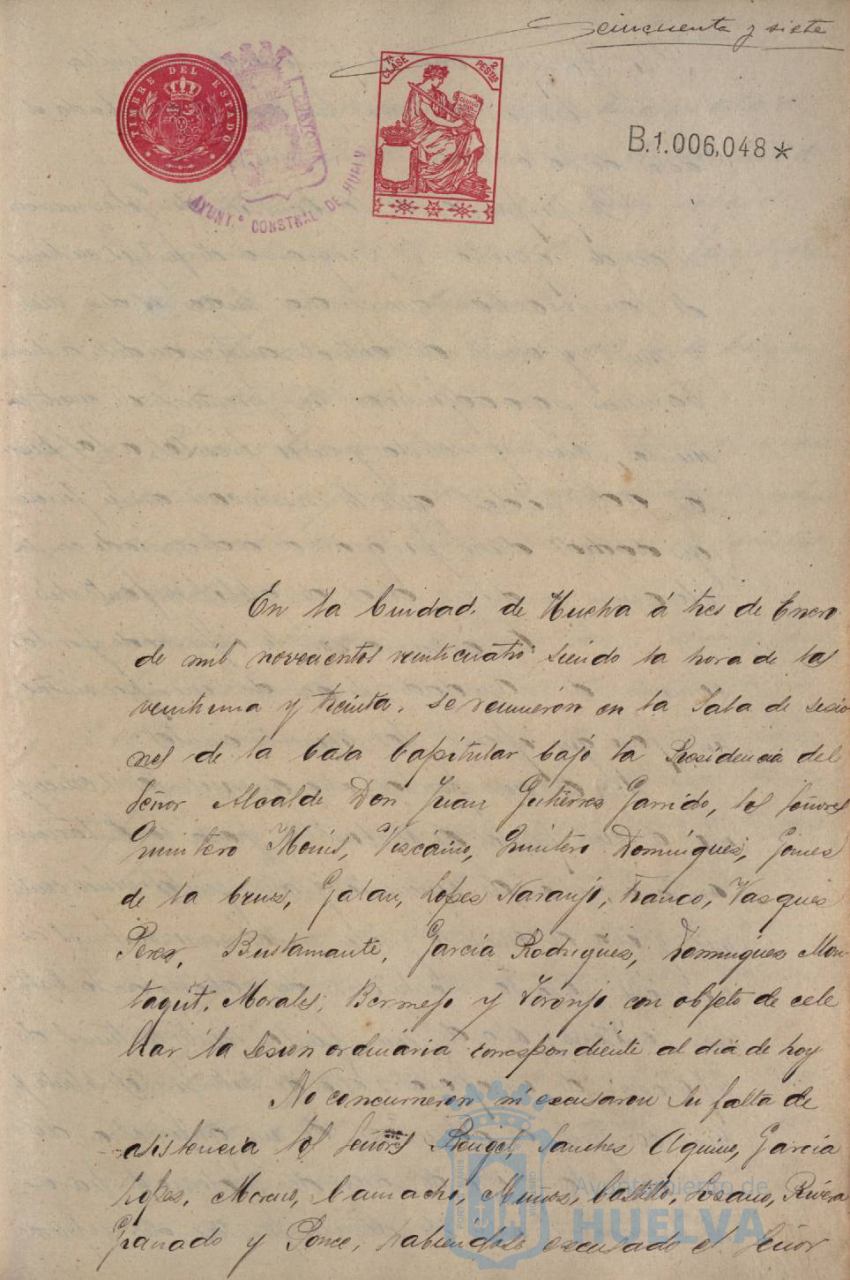 cincuenta y siete
TIMBRE DEL ESTADO
AYUNT.º CONSTNAL DE HUELVA
7ª CLASE 2 PESTAS
B.1.006,048*
En la Ciudad de Huelva á tres de Enero
de mil novecientos veinticuatro siendo la hora de las
veintiuna y treinta, se reunieron en la Sala de Sesio
nes de la Casa Capitular bajo la Presidencia del
Señor Alcalde Don Juan Gutiérrez Garrido, los Señores
Quintero Monís, Vizcáino, Quintero Domínguez, Gomez
de la Cruz, Galan, Lopez Naranjo, Franco, Vazquez
Perez, Bustamante, García Rodriguez, Dominguez Mon
tagút, Morales, Bermejo y Toronjo con objeto de cele
brar la Sesion ordinária correspondiente al diá de hoy
No concurrieron ni excusaron su falta de
asistencia los Señores Rengel, Sanchez Aquino, García
Lopez, Moreno, Camacho, Muñoz, Castillo, Lozano, Rivera
Granado y Ponce, habiendolo excusado el Señor
Ayuntamiento de
HUELVA